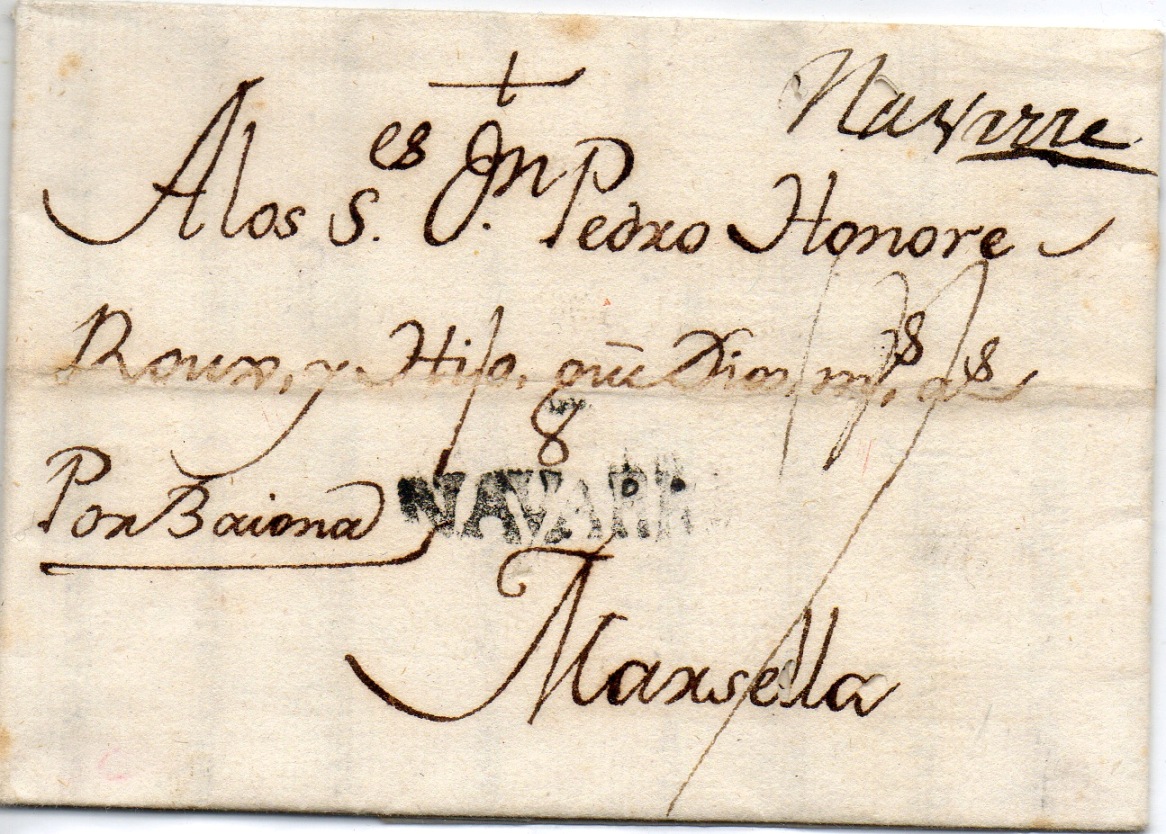 Navarre
A los S.es Jn. Pedro Honore
Roux, y Hijo, gue Dios ms. as
8
Por Baiona
NAVARR
Marsella